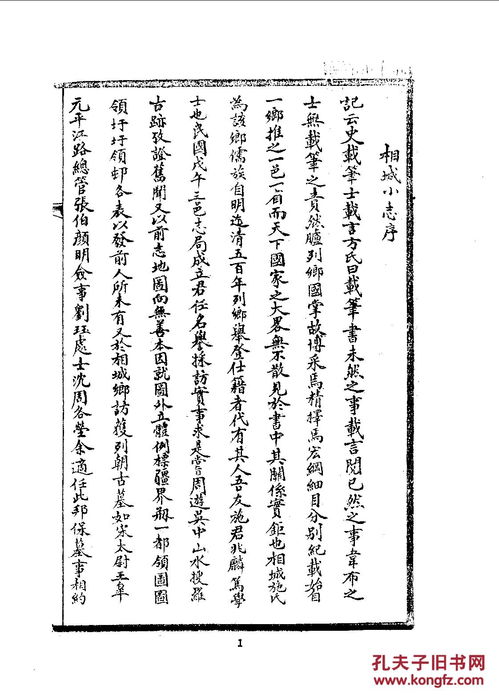 相城小志序
記云史載筆士載言方氏曰載筆書未然之事載言閱已然之事韋布之
士無載筆之責然臚列鄉國掌故博采焉精擇焉宏綱細目分別紀載始自
一鄉推之一邑一省而天下國家之大畧無不散見於書中其關係實鉅也相城施氏
為該鄉儒族自明迄清五百年列鄉舉登仕籍者代有其人吾友施君兆麟篤學
士也民國戊午三邑志局成立君任名譽採訪實事求是嘗周遊吳中山水搜羅
古跡攷證舊聞又以前志地圖向無善本因就圖外立體例標疆界剏一都領圖圖
領圩圩領邨各表以發前人所未有又於相城鄉訪獲列朝古墓如宋太尉王皋
元平江路總管張伯顏明僉事劉珏處士沈周各塋余適任此邦保墓事相約
1
孔夫子旧书网
www.kongfz.com